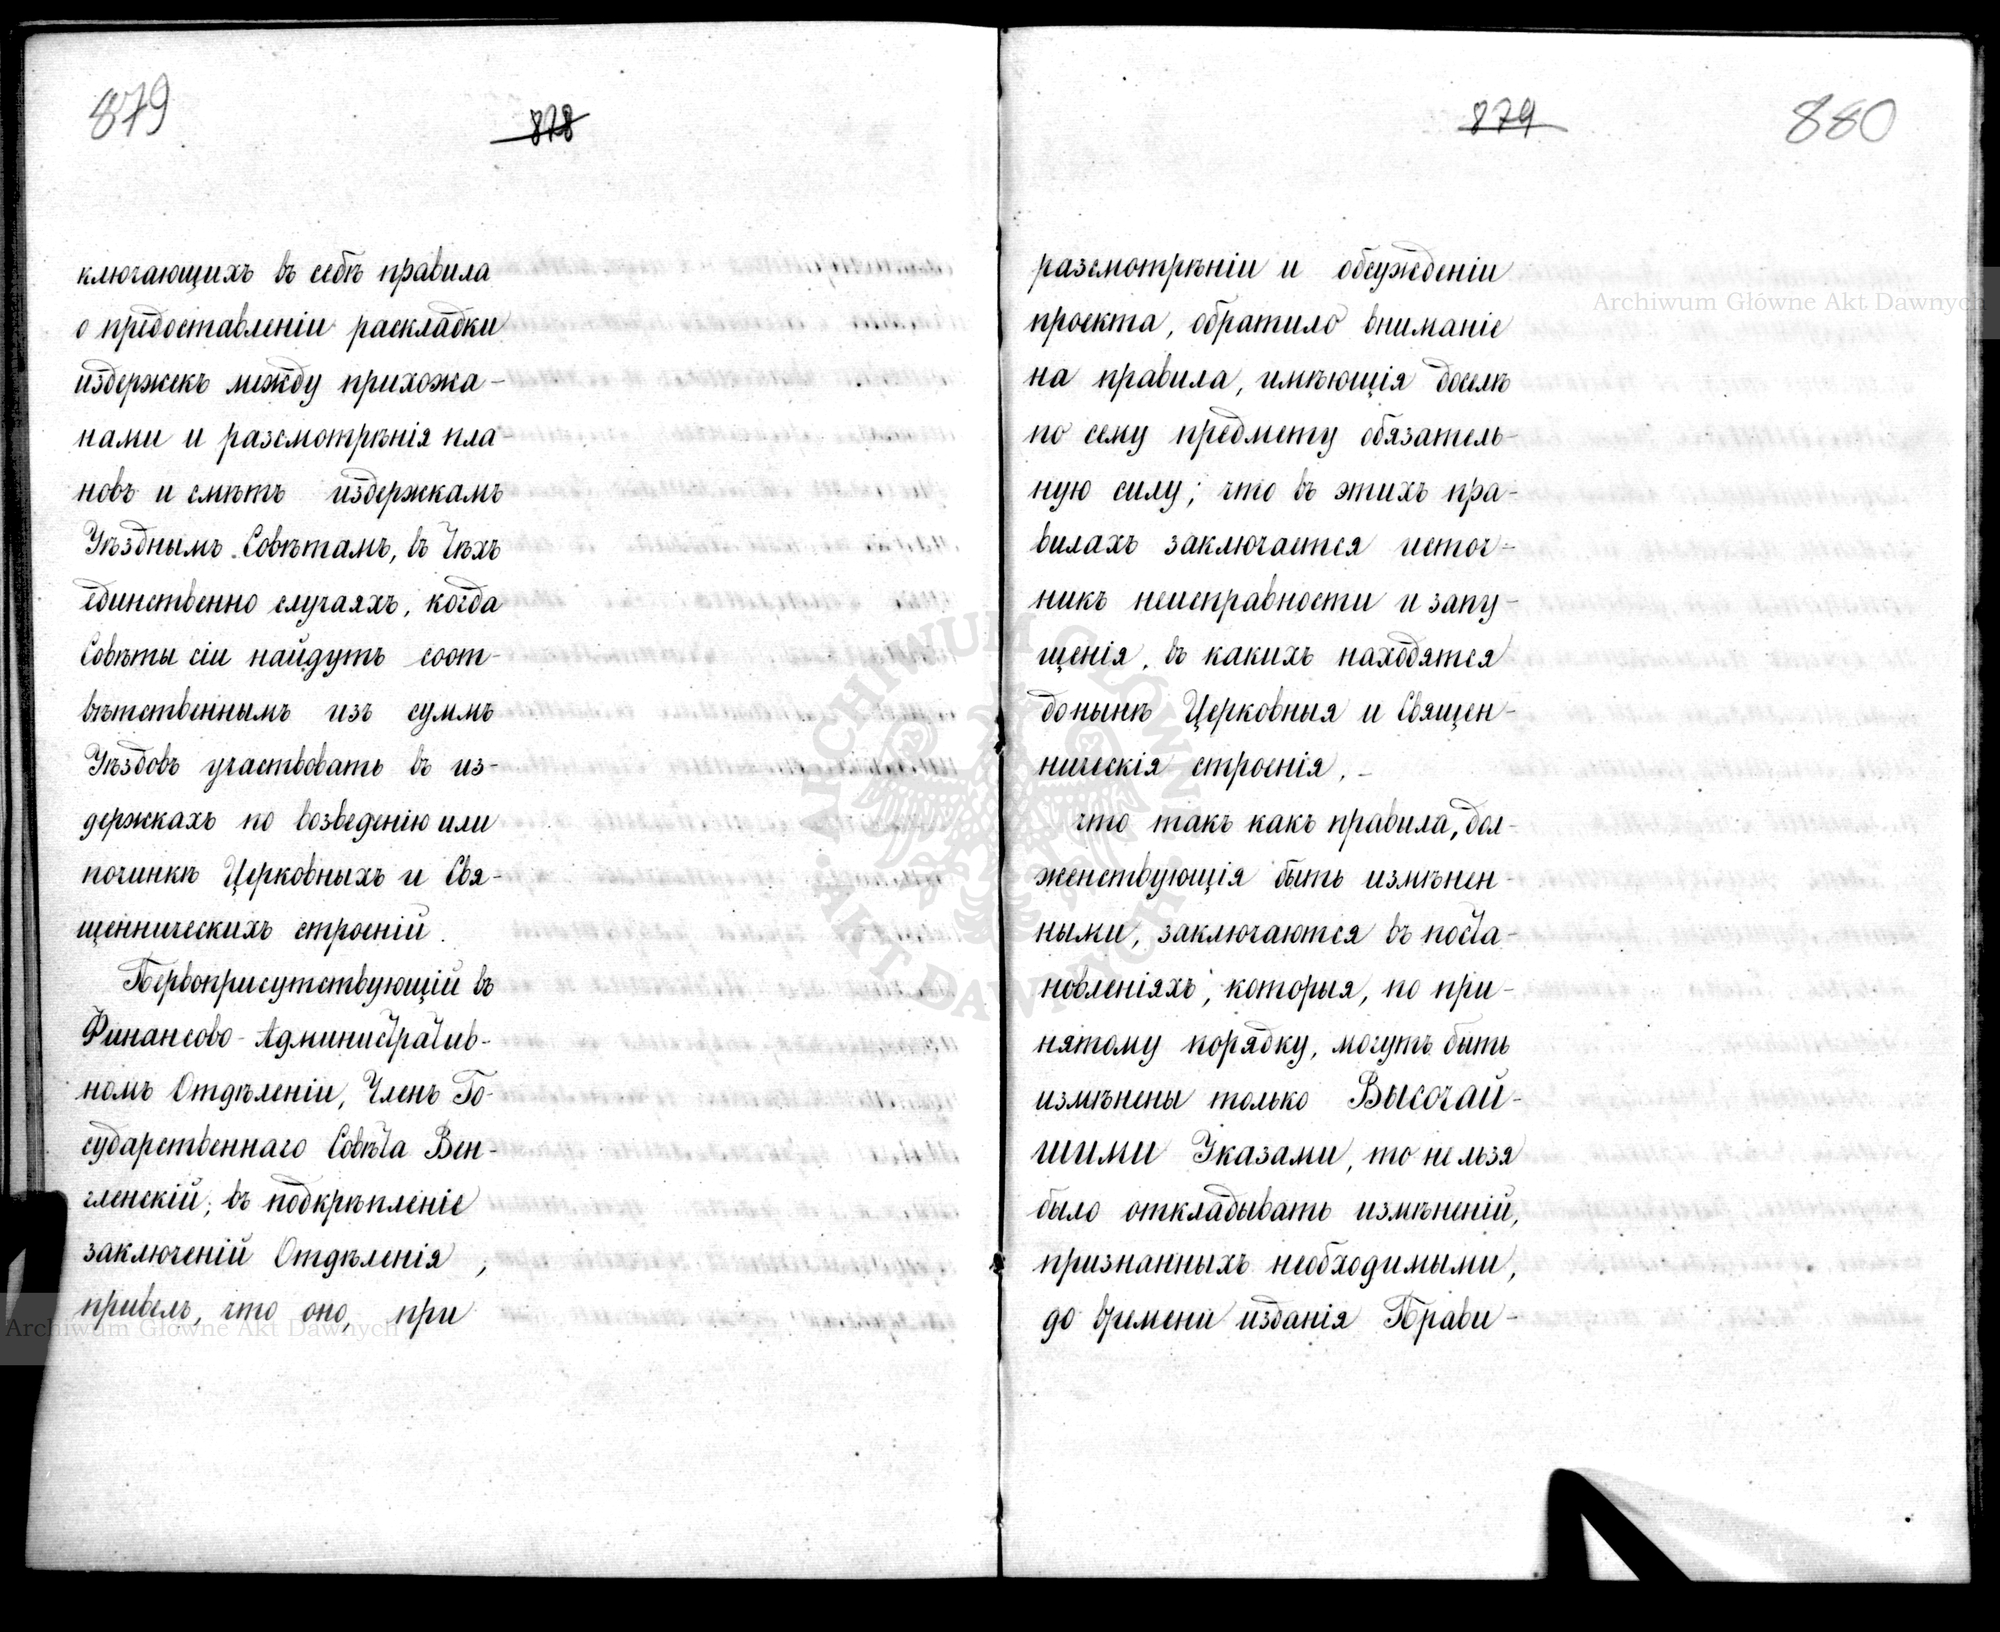 879
878
ключающихъ въ себѣ правила
о предоставленіи раскладки
издержекъ между прихожа-
нами и разсмотрѣнія пла-
новъ и смѣтъ издержкамъ
Уѣзднымъ Совѣтамъ, въ тѣхъ
единственно случаяхъ, когда
Совѣты сіи найдутъ соот-
вѣтственнымъ изъ суммъ
Уѣздовъ участвовать въ из-
держкахъ по возведенію или
починкѣ Церковныхъ и Свя-
щенническихъ строеній.
Первоприсутствующій въ
Финансово-Административ-
номъ Отдѣленіи, Членъ Го-
сударственнаго Совѣта Вен-
гленскій, въ подкрѣпленіе
заключеній Отдѣленія,
привелъ, что оно, при
879
880
разсмотрѣніи и обсужденіи
проекта, обратило вниманіе
на правила, имѣющія доселѣ
по сему предмету обязатель-
ную силу; что въ этихъ пра-
вилахъ заключается источ-
никъ неисправности и запу-
щенія, въ какихъ находятся
донынѣ Церковныя и Священ-
ническія строенія, -
что такъ какъ правила, дол-
женствующія быть измѣнен-
ными, заключаются въ поста-
новленіяхъ, которыя, по при-
нятому порядку, могутъ быть
измѣнены только Высочай-
шими Указами, то нельзя
было откладывать измѣненій,
признанныхъ необходимыми,
до времени изданія Прави-
Archiwum Główne Akt Dawnych
Archiwum Główne Akt Dawnych
ARCHIWUM GŁÓWNE
AKT DAWNYCH